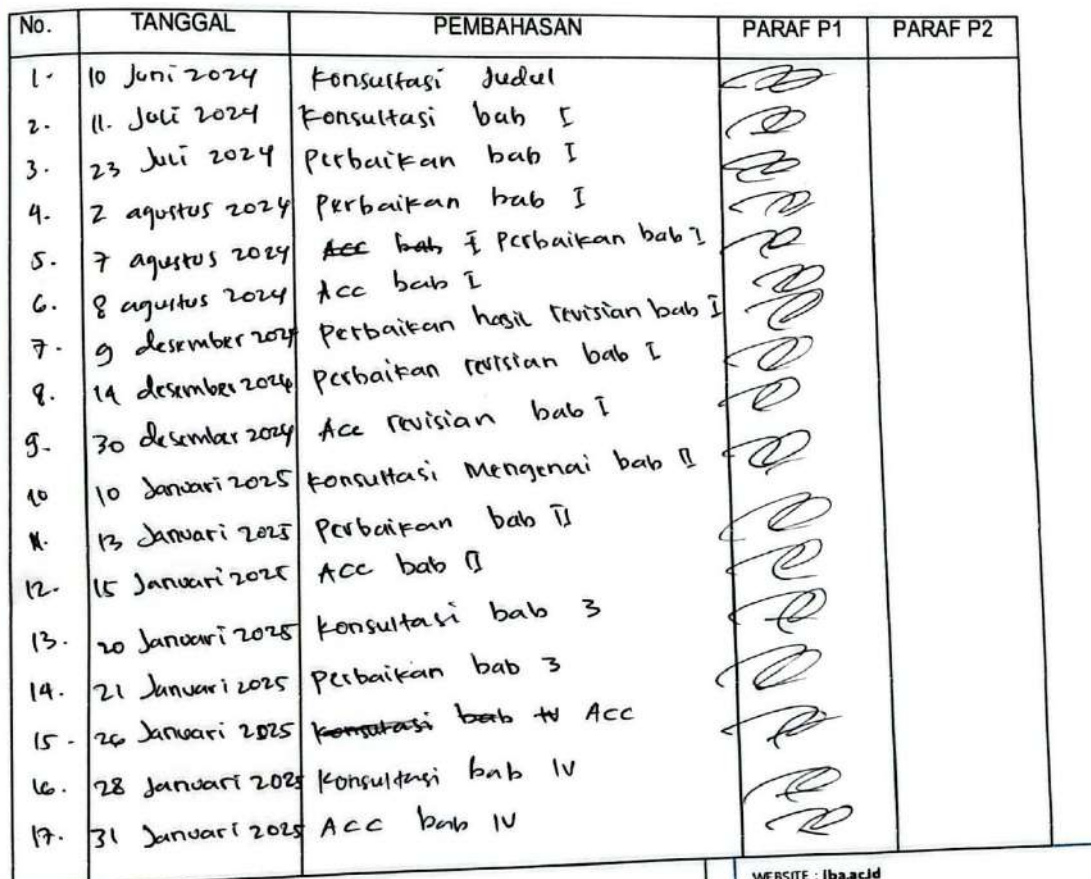 No. TANGGAL PEMBAHASAN PARAF P1 PARAF P2
1. 10 Juni 2024 Konsultasi Judul
2. 11. Juli 2024 Konsultasi bab I
3. 23 Juli 2024 Perbaikan bab I
4. 2 agustus 2024 Perbaikan bab I
5. 7 agustus 2024 Acc bab I Perbaikan bab I
6. 8 agustus 2024 Acc bab I
7. 9 desember 2024 Perbaikan hasil revisian bab I
8. 14 desember 2024 Perbaikan revisian bab I
9. 30 desember 2024 Acc revisian bab I
10 10 Januari 2025 Konsultasi Mengenai bab II
11. 13 Januari 2025 Perbaikan bab II
12. 15 Januari 2025 ACC bab II
13. 20 Januari 2025 Konsultasi bab 3
14. 21 Januari 2025 Perbaikan bab 3
15. 26 Januari 2025 Konsultasi bab IV ACC
16. 28 Januari 2025 Konsultasi bab IV
17. 31 Januari 2025 ACC bab IV
WEBSITE : iba.ac.id